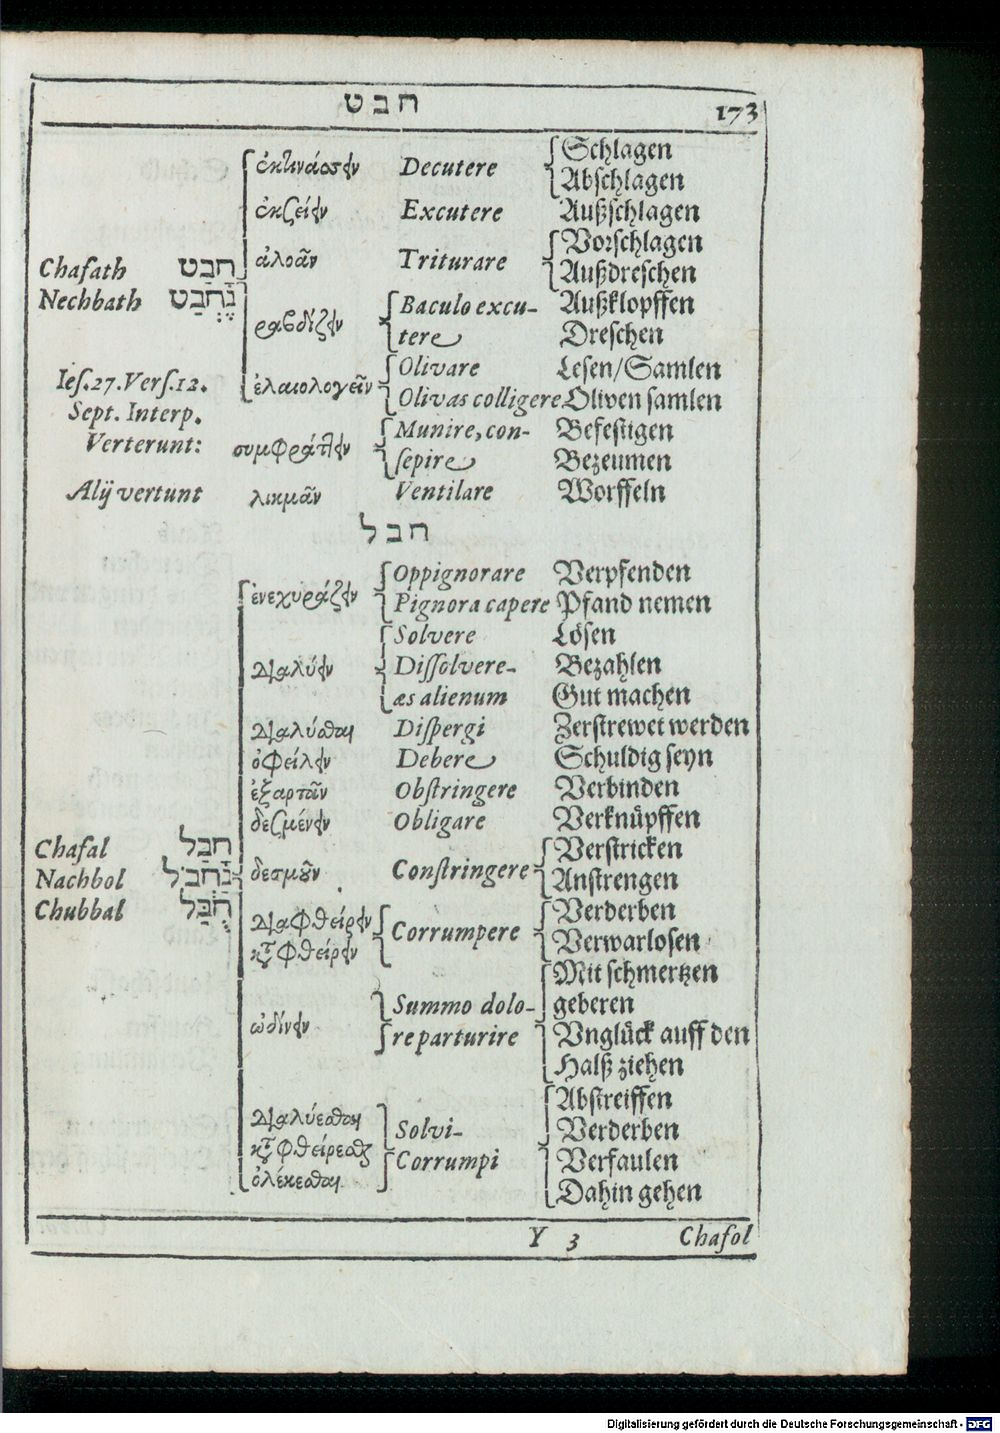 חבט 173
ἐκτινάσσειν Decutere Schlagen
Abschlagen
ἐκζεῖν Excutere Außschlagen
ἀλοᾶν Triturare Vorschlagen
Chafath חָבַט Außdreschen
Nechbath נֶחְבַּט Baculo excu- Außklopffen
ραβδίζειν tere Dreschen
Olivare Lesen/Samlen
Ies. 27. Vers. 12. ἐλαιολογεῖν Olivas colligere Oliven samlen
Sept. Interp. Munire, con- Befestigen
Verterunt: συμφράττειν sepire Bezeumen
Alij vertunt λικμᾶν Ventilare Worffeln
חבל
ἐνεχυράζειν Oppignorare Verpfenden
Pignora capere Pfand nemen
Solvere Lösen
διαλύειν Dissolvere Bezahlen
æs alienum Gut machen
διαλύεσθαι Dispergi Zerstrewet werden
ὀφείλειν Debere Schuldig seyn
ἐξαρτᾶν Obstringere Verbinden
δεσμεύειν Obligare Verknüpffen
Chafal חָבַל Verstricken
Nachbol נַחְבֹּל δεσμοῦν Constringere Anstrengen
Chubbal חֻבַּל διαφθείρειν Verderben
καταφθείρειν Corrumpere Verwarlosen
Mit schmertzen
ὠδίνειν Summo dolo- geberen
re parturire Vnglück auff den
Halß ziehen
Abstreiffen
διαλύεσθαι Solvi- Verderben
καταφθείρεσθαι Corrumpi Verfaulen
ὀλέκεσθαι Dahin gehen
Y 3 Chafol
Digitalisierung gefördert durch die Deutsche Forschungsgemeinschaft - DFG